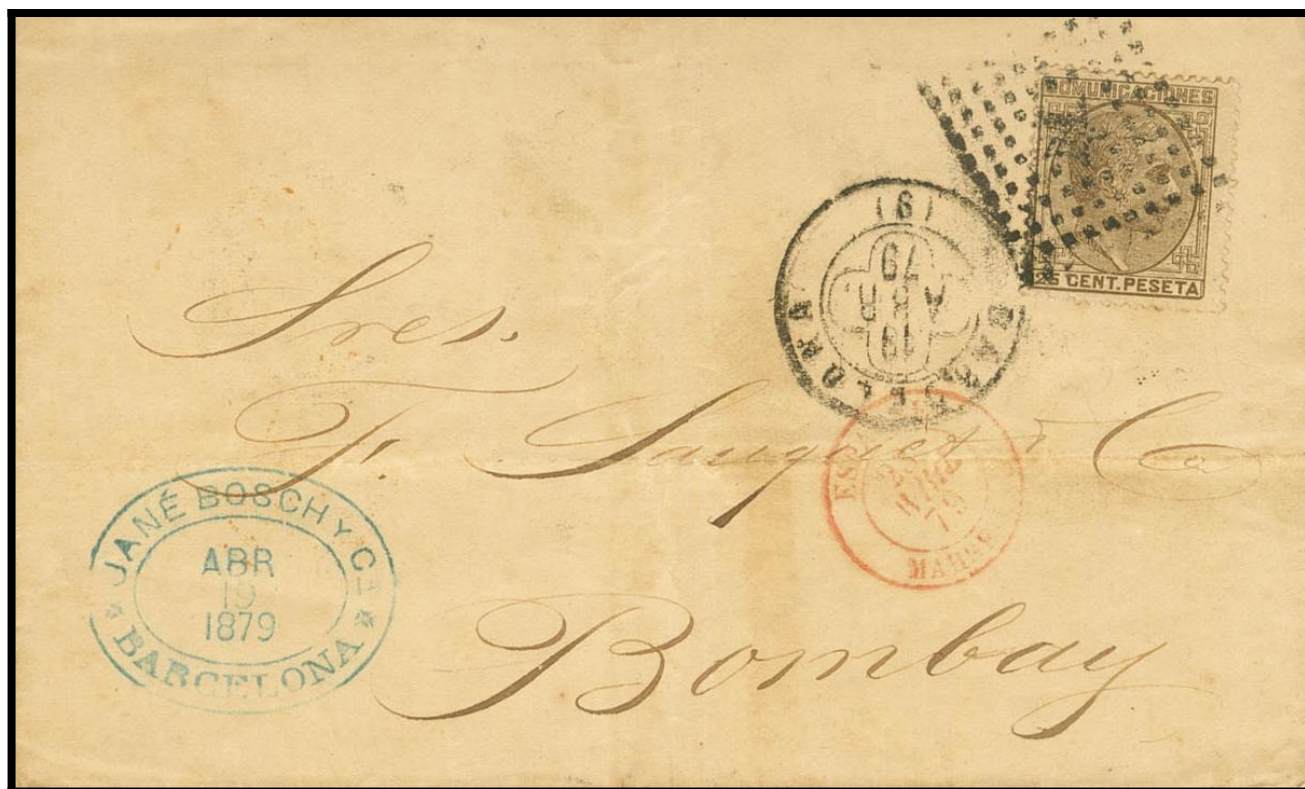 COMUNICACIONES
25 CENT. PESETA
BARCELONA
(6)
19
ABR
79
Sres.
F. Sauquet & Co
ESP
79
MARSE
JANÉ BOSCH Y Cª
ABR
19
1879
BARCELONA
Bombay